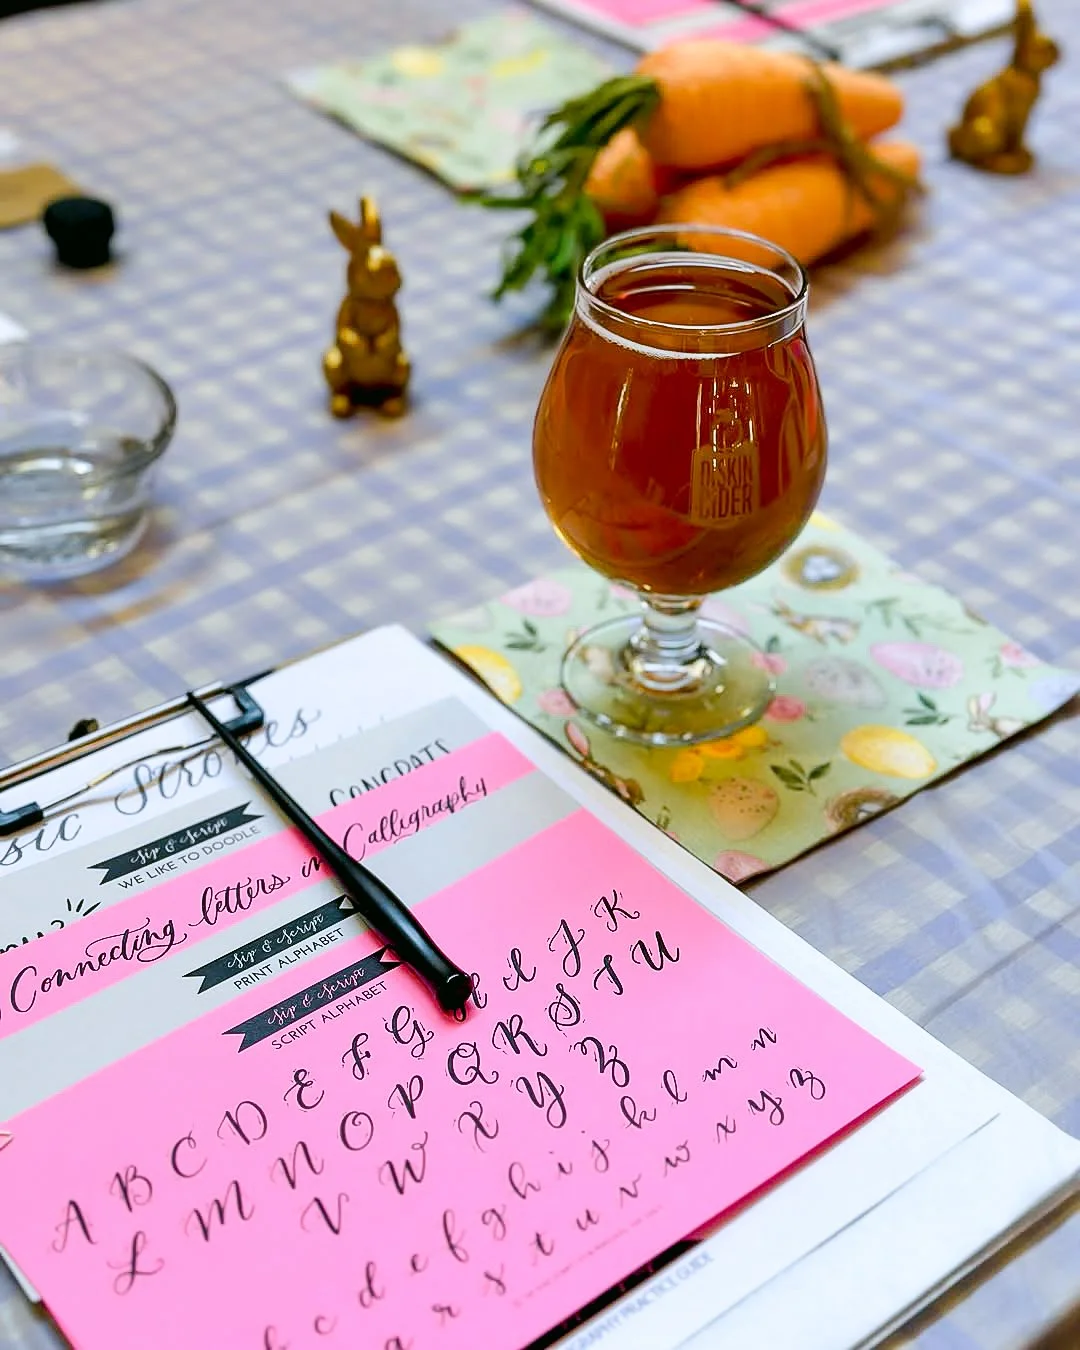 DISKIN
CIDER
CONGRATS
Sip & Script
WE LIKE TO DOODLE
Connecting letters in Calligraphy
Sip & Script
PRINT ALPHABET
Sip & Script
SCRIPT ALPHABET
A B C D E F G H I J K
L M N O P Q R S T U
V W X Y Z
c d e f g h i j k l m n
r s t u v w x y z
PRACTICE GUIDE